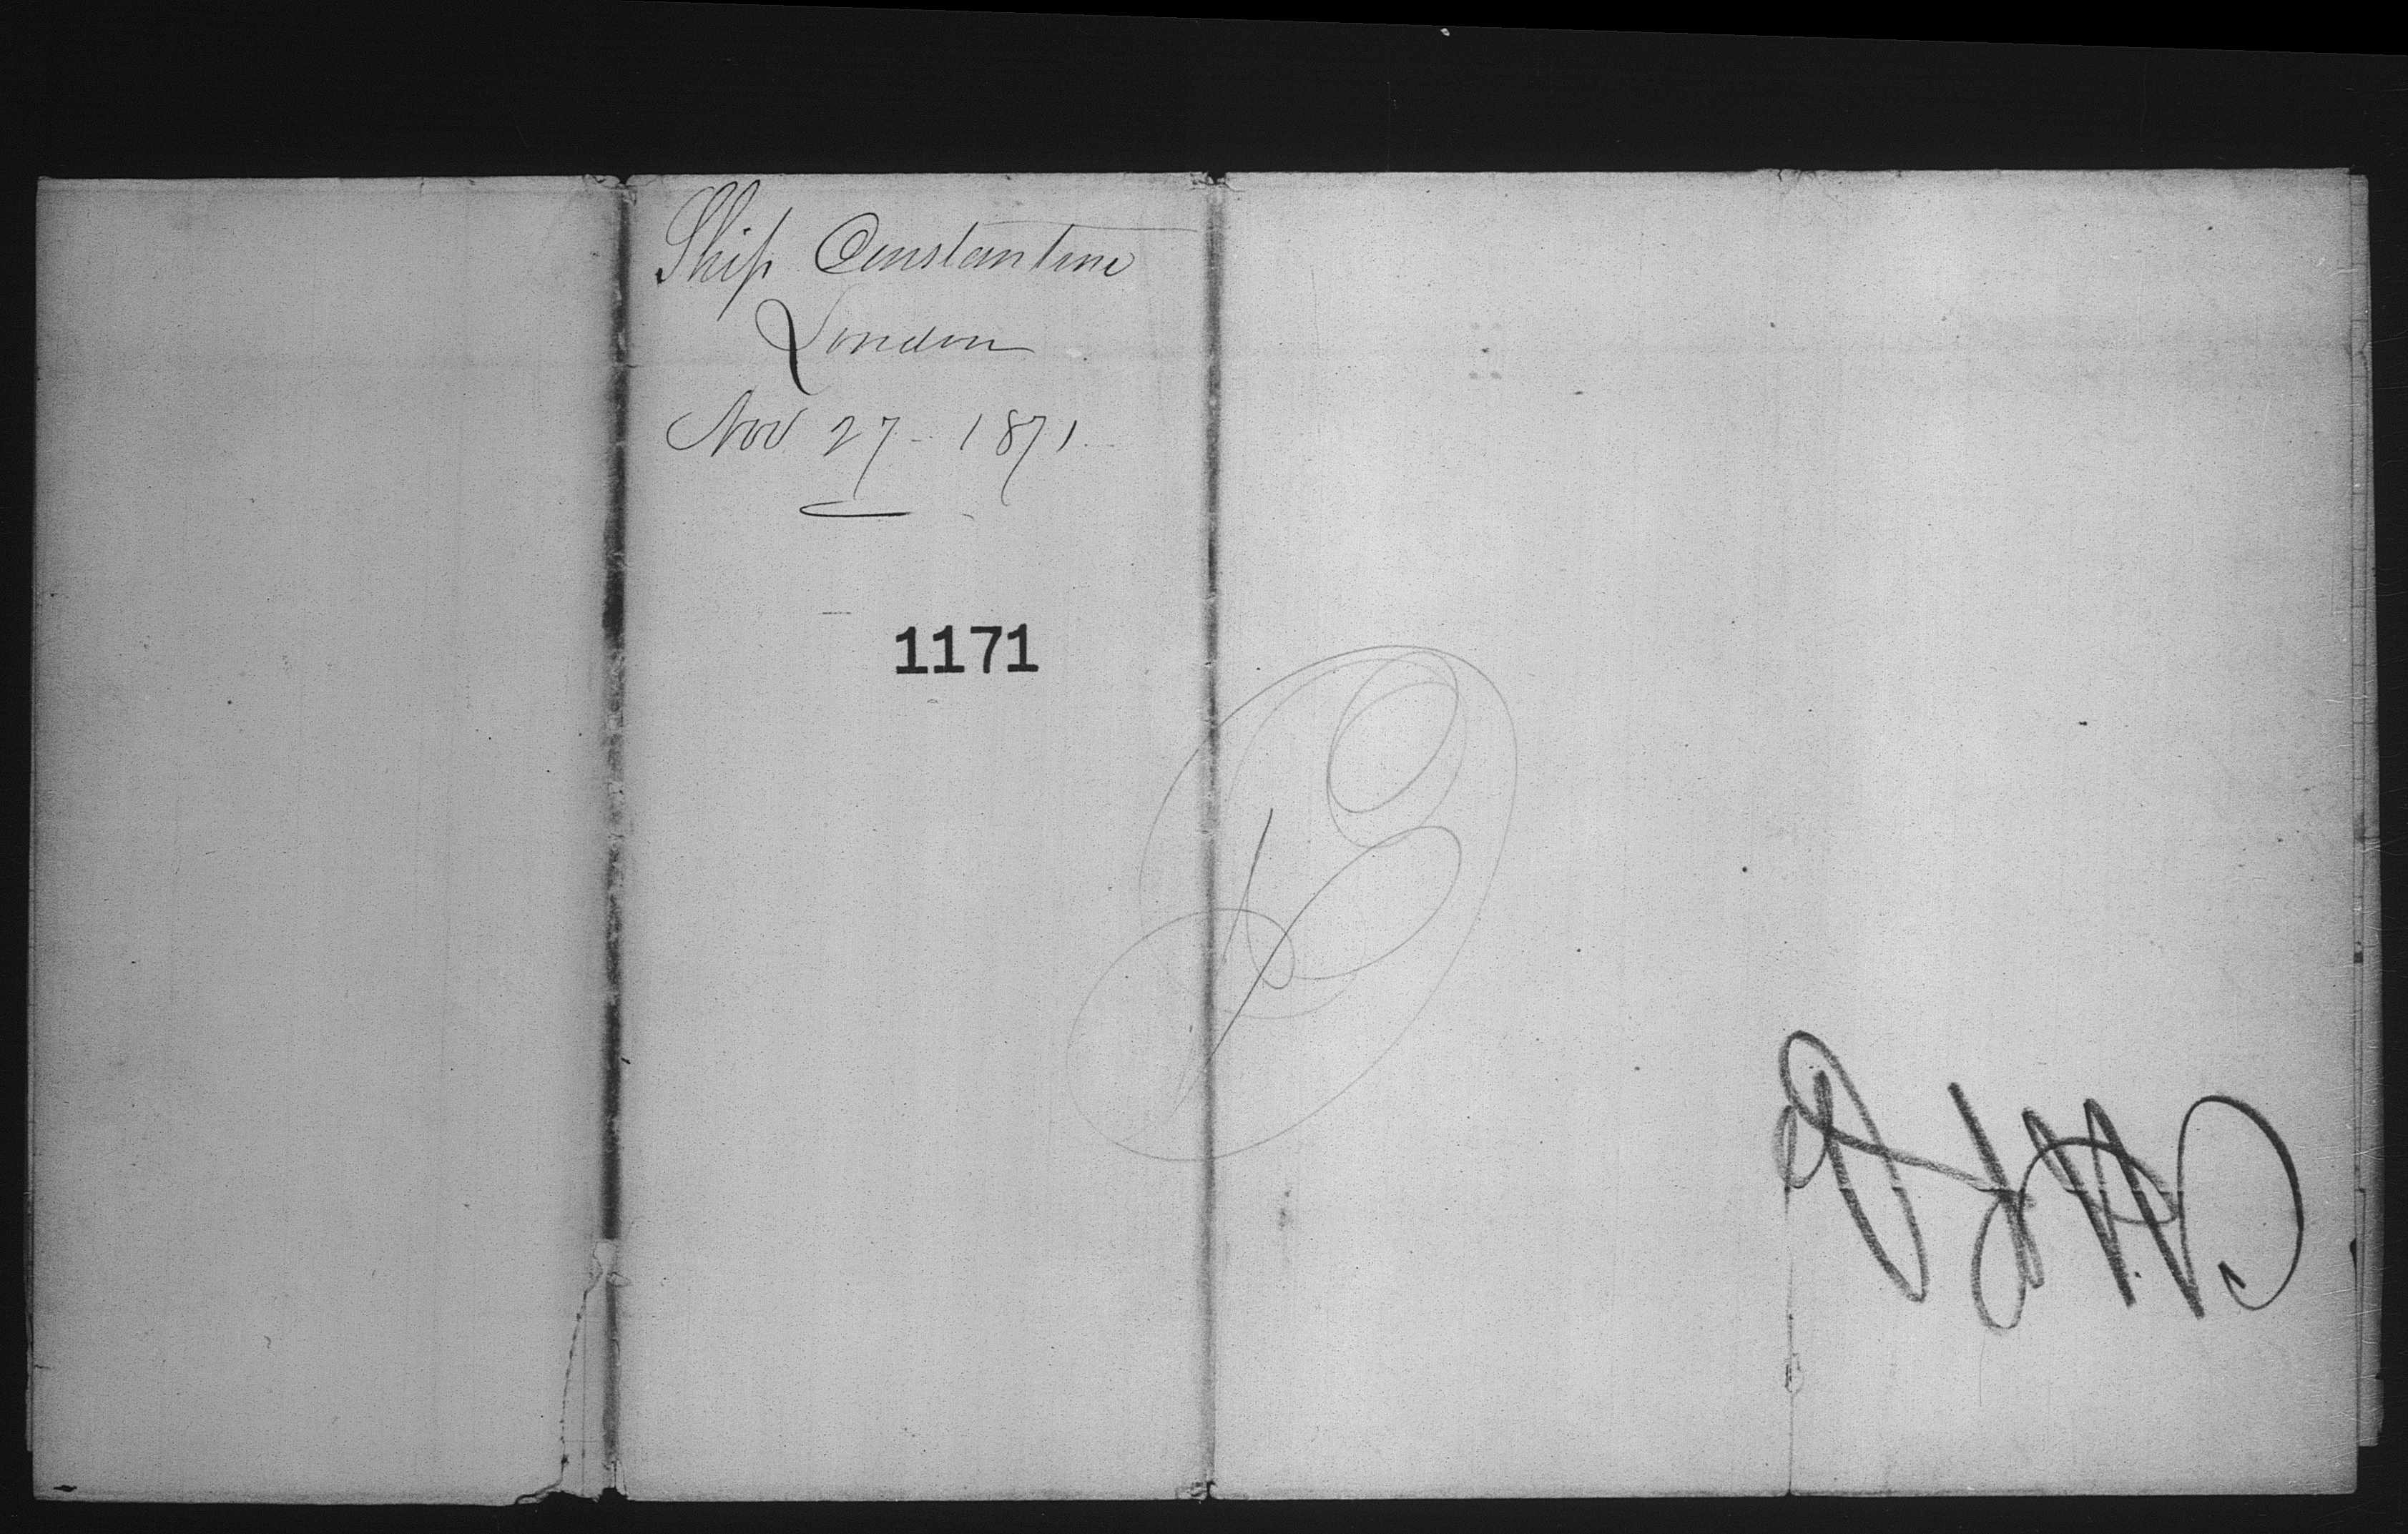 Ship Constantine
London
Nov 27 - 1871
1171